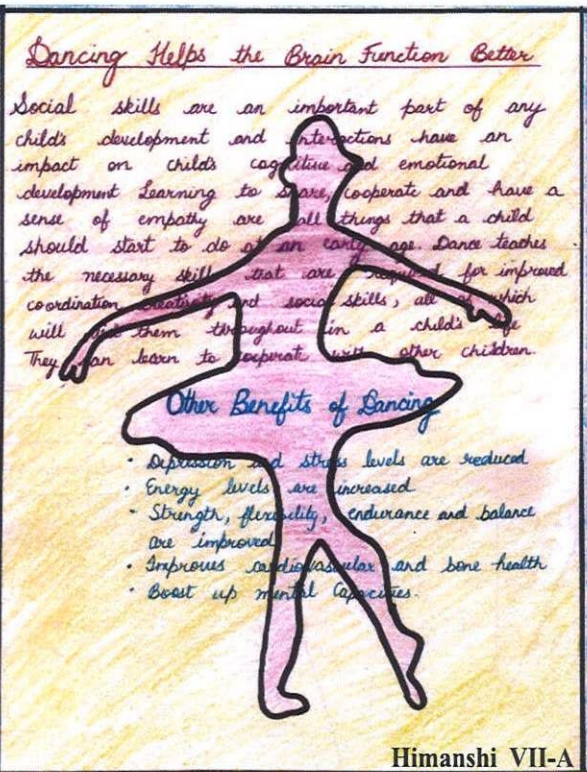 Dancing Helps the Brain Function Better
Social skills are an important part of any
child's development and interactions have an
impact on child's cognitive and emotional
development Learning to share, cooperate and have a
sense of empathy are all things that a child
should start to do at an early age. Dance teaches
the necessary skill that are required for improved
coordination, creativity and social skills, all of which
will aid them throughout in a child's life
They can learn to cooperate with other children.
Other Benefits of Dancing
• Depression and stress levels are reduced
• Energy levels are increased
• Strength, flexibility, endurance and balance
are improved
• Improves cardiovascular and bone health
• Boost up mental Capacities.
Himanshi VII-A